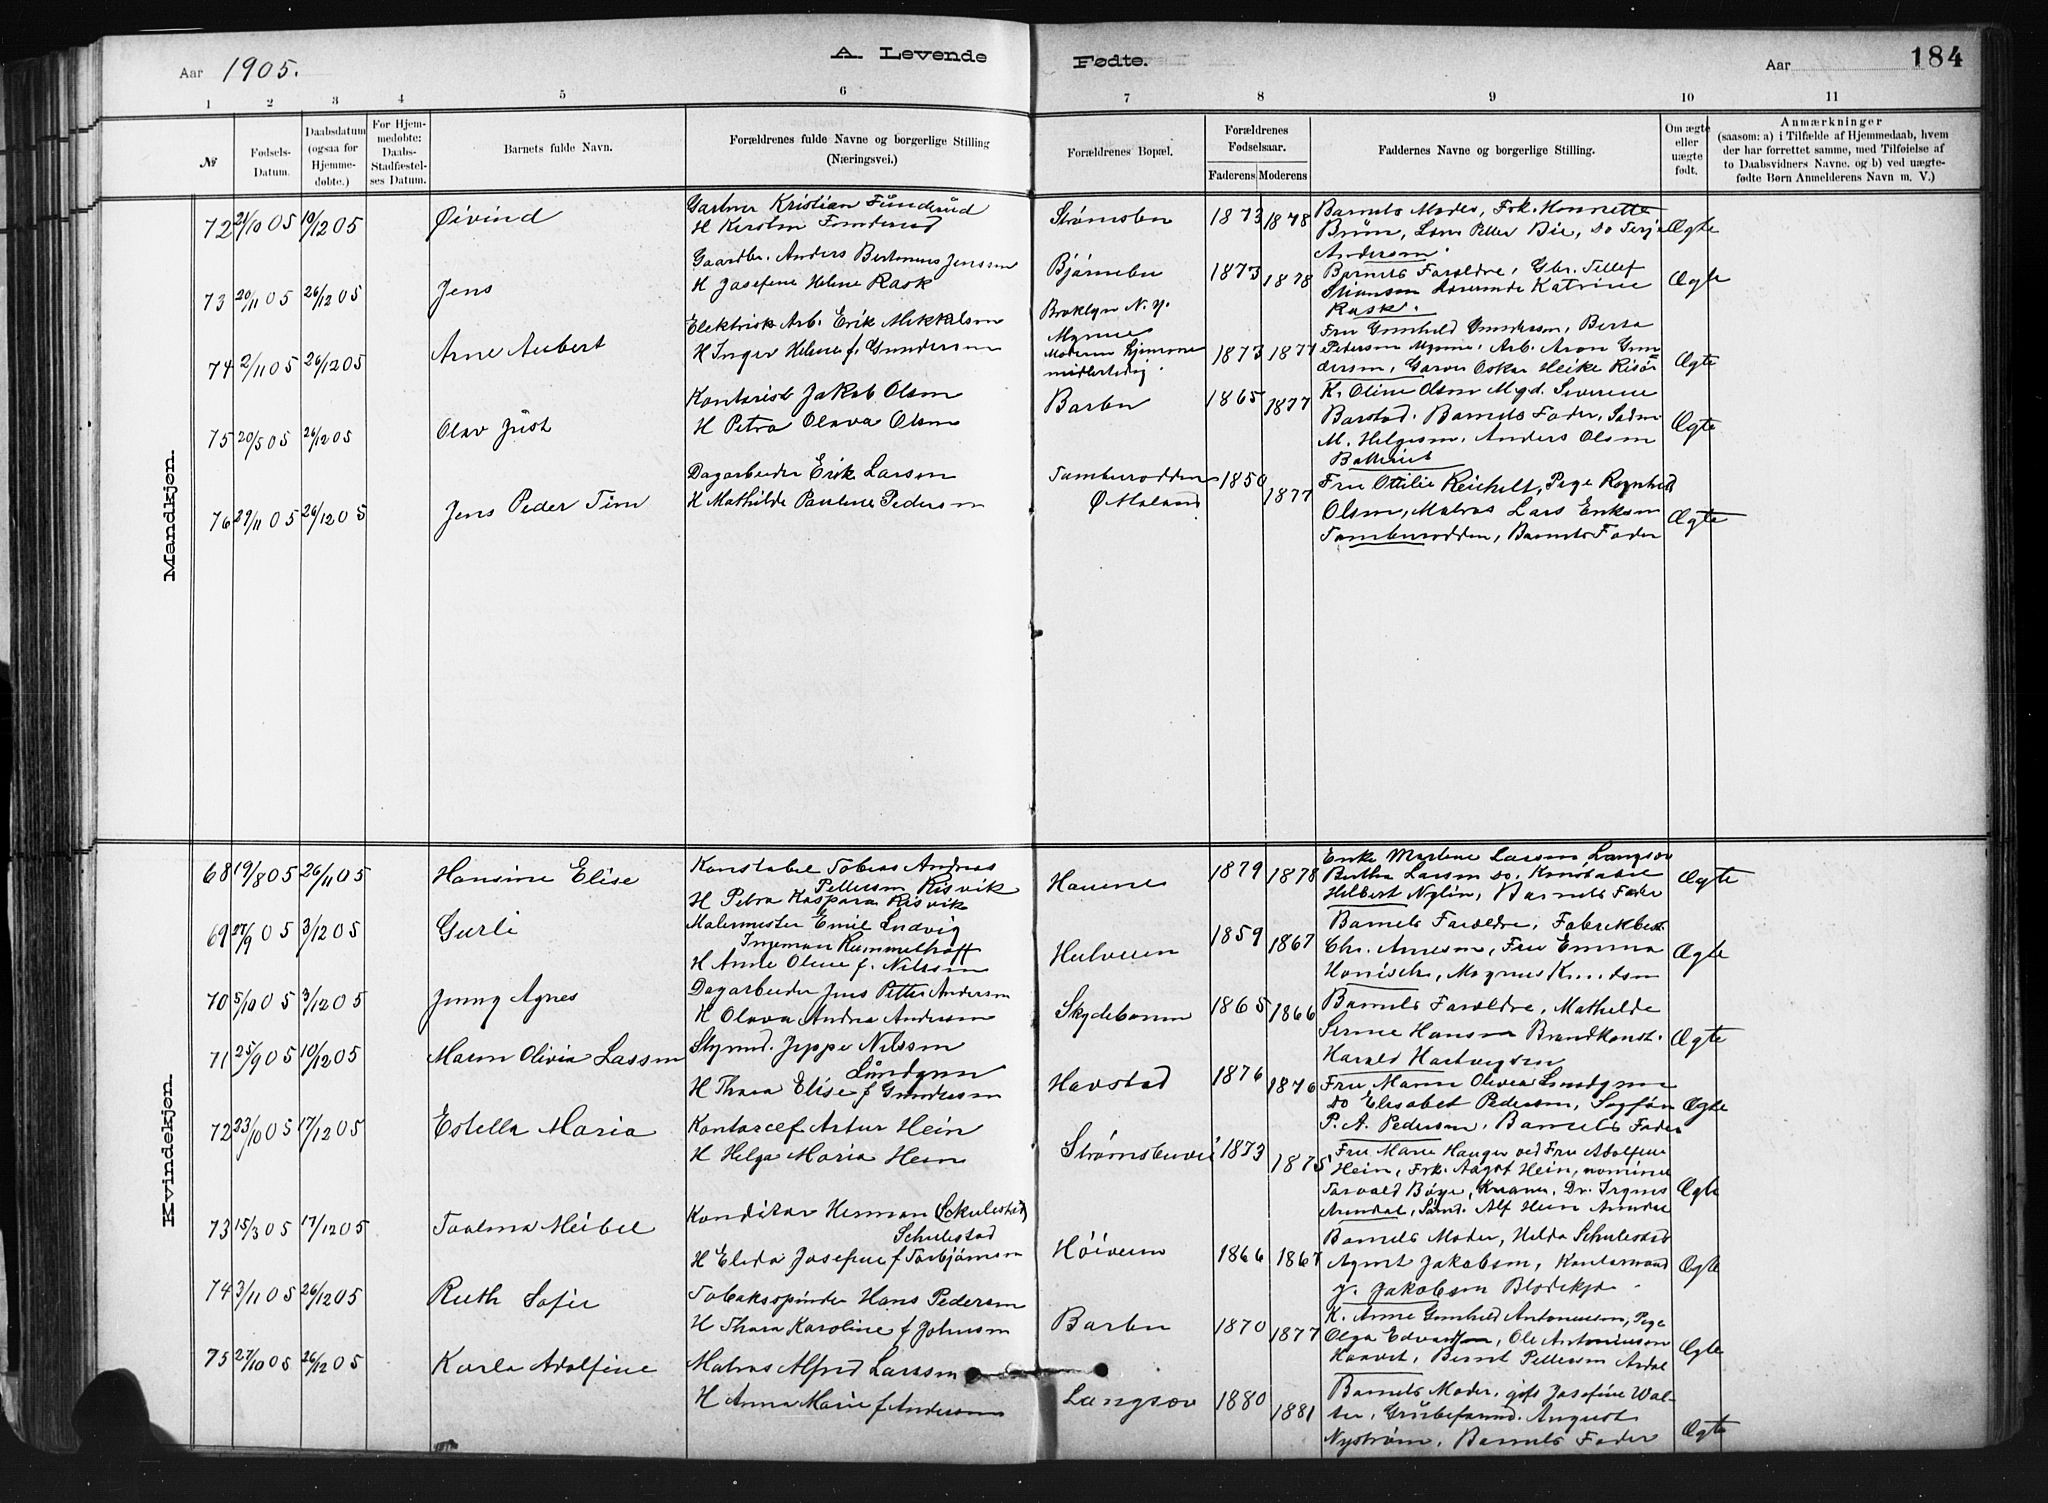 Aar 1905.
A. Levende
Fødte.
Aar
184
1 2 3 4 5 6 7 8 9 10 11
№
Fødsels-Datum.
Daabsdatum (ogsaa for Hjemme-døbte.)
For Hjem-medøbte: Daabs-Stadfæstel-ses Datum.
Barnets fulde Navn.
Forældrenes fulde Navne og borgerlige Stilling (Næringsvei.)
Forældrenes Bopæl.
Forældrenes Fødselsaar.
Faderens Moderens
Faddernes Navne og borgerlige Stilling.
Om ægte eller uægte født.
Anmærkninger
(saasom: a) i Tilfælde af Hjemmedaab, hvem
der har forrettet samme, med Tilføielse af
to Daabsvidners Navne. og b) ved uægte-
fødte Børn Anmelderens Navn m. V.)
Mandkjøn.
72 21/10 05 19/12 05 Øivind
Gartner Kristian Funderud
H Kirsten Funderud
Strømsbu 1873 1878
Barnets Moder, Frk. Henriette
Petter Bie, Do Terje
Andersen
Ægte
73 20/11 05 26/12 05 Jens
Gaardbr. Anders Bertinius Jenssen
H Josefine Helene Rask
Bjørnebu 1873 1878
Barnets Forældre, Gbr. Tellef
Katrine
Rask.
Ægte
74 2/11 05 26/12 05 Arne Aubert
Elektrisk Arb. Erik Mikkelsen
H Inger Helene f. Gundersen
Broklyn N. Y.
Myrene
Moderen hjemme
midlertidig
1873 1871
Fru Gunhild Gundersen, Berta
Pedersen Myrene, Arb. Aron Gun-
dersen, Garver Oskar Heike Risør
Ægte
75 20/5 05 26/12 05 Olav Just
Kontorist Jakob Olsen
H Petra Olava Olsen
Barbu 1865 1877
K. Oline Olsen Mgd. Severine
Barstad. Barnets Fader, Sadm
M. Helgesen, Anders Olsen
Ægte
76 29/11 05 26/12 05 Jens Peder Tim
Dagarbeider Erik Larsen
H Mathilde Pauline Pedersen
Tamburodden
Ø Maland
1850 1877
Fru Ottilie Reichelt, Pige Ragnhild
Olsen, Matros Lars Eriksen
Tamburodden, Barnets Fader
Ægte
Kvindekjøn.
68 19/8 05 26/11 05 Hansine Elise
Konstabel Tobias Andreas
Pettersen Risvik
H Petra Kaspara Risvik
Havene 1879 1878
Enke Martine Larsen Langsæv
Bertha Larsen do. Konstabel
Helbert Nylin, Barnets Fader
Ægte
69 27/9 05 3/12 05 Gurli
Malermester Emil Ludvig
Ingeman Rummelhoff
H Anne Oline f. Nilssen
1859 1867
Barnets Forældre, Fabrikbest.
Chr. Arnesen, Fru Emma
Hanisch, Magnus Knudsen
Ægte
70 5/10 05 3/12 05 Jenny Agnes
Dagarbeider Jens Petter Andersen
H Olava Andrea Andersen
Skydebanen 1865 1866
Barnets Forældre, Mathilde
Hansen Brandkonst.
Harald Hartvigsen
Ægte
71 25/9 05 10/12 05 Maren Olivia Lassen
Styrmd. Jeppe Nilssen
Lundgren
H Thora Elise f Gundersen
Havstad 1876 1876
Fru Maren Olivia Lundgren
Do Elisabet Pedersen,
P. A. Pedersen, Barnets Fader
Ægte
72 23/10 05 17/12 05 Estella Maria
Kontorchef Artur Hein
H Helga Maria Hein
Strømsbuvei 1873 1875
Fru Marie Hauger ved Fru Adolfine
Hein, Frk. Aagot Hein,
Torvald Bøye,
Arendal, Alf Hein Arendal
Ægte
73 15/3 05 17/12 05 Taalma Meibel
Konditor Herman (Schulestad)
Schulestad
H Elida Josefine f Torbjørnsen
Høiveien 1866 1867
Barnets Moder, Helda Schulestad
Agnet Jakobsen, Kontormand
J. Jakobsen Blødekjær
Ægte
74 3/11 05 26/12 05 Ruth Sofie
Tobakspinder Hans Pedersen
H Thora Karoline f Johnsen
Barbu 1870 1877
K. Anne Gunhild Antoniusen, Pige
Olga Edvardsen, Ole Antoniusen
Haavet, Bernt Pettersen Ardal
Ægte
75 27/10 05 26/12 05 Karla Adolfine
Matros Alfred Larssen
H Anna Marie f Andersen
Langsæv 1880 1881
Barnets Moder, gift Josefine Wal-
ter, August
Nystrøm, Barnets Fader
Ægte